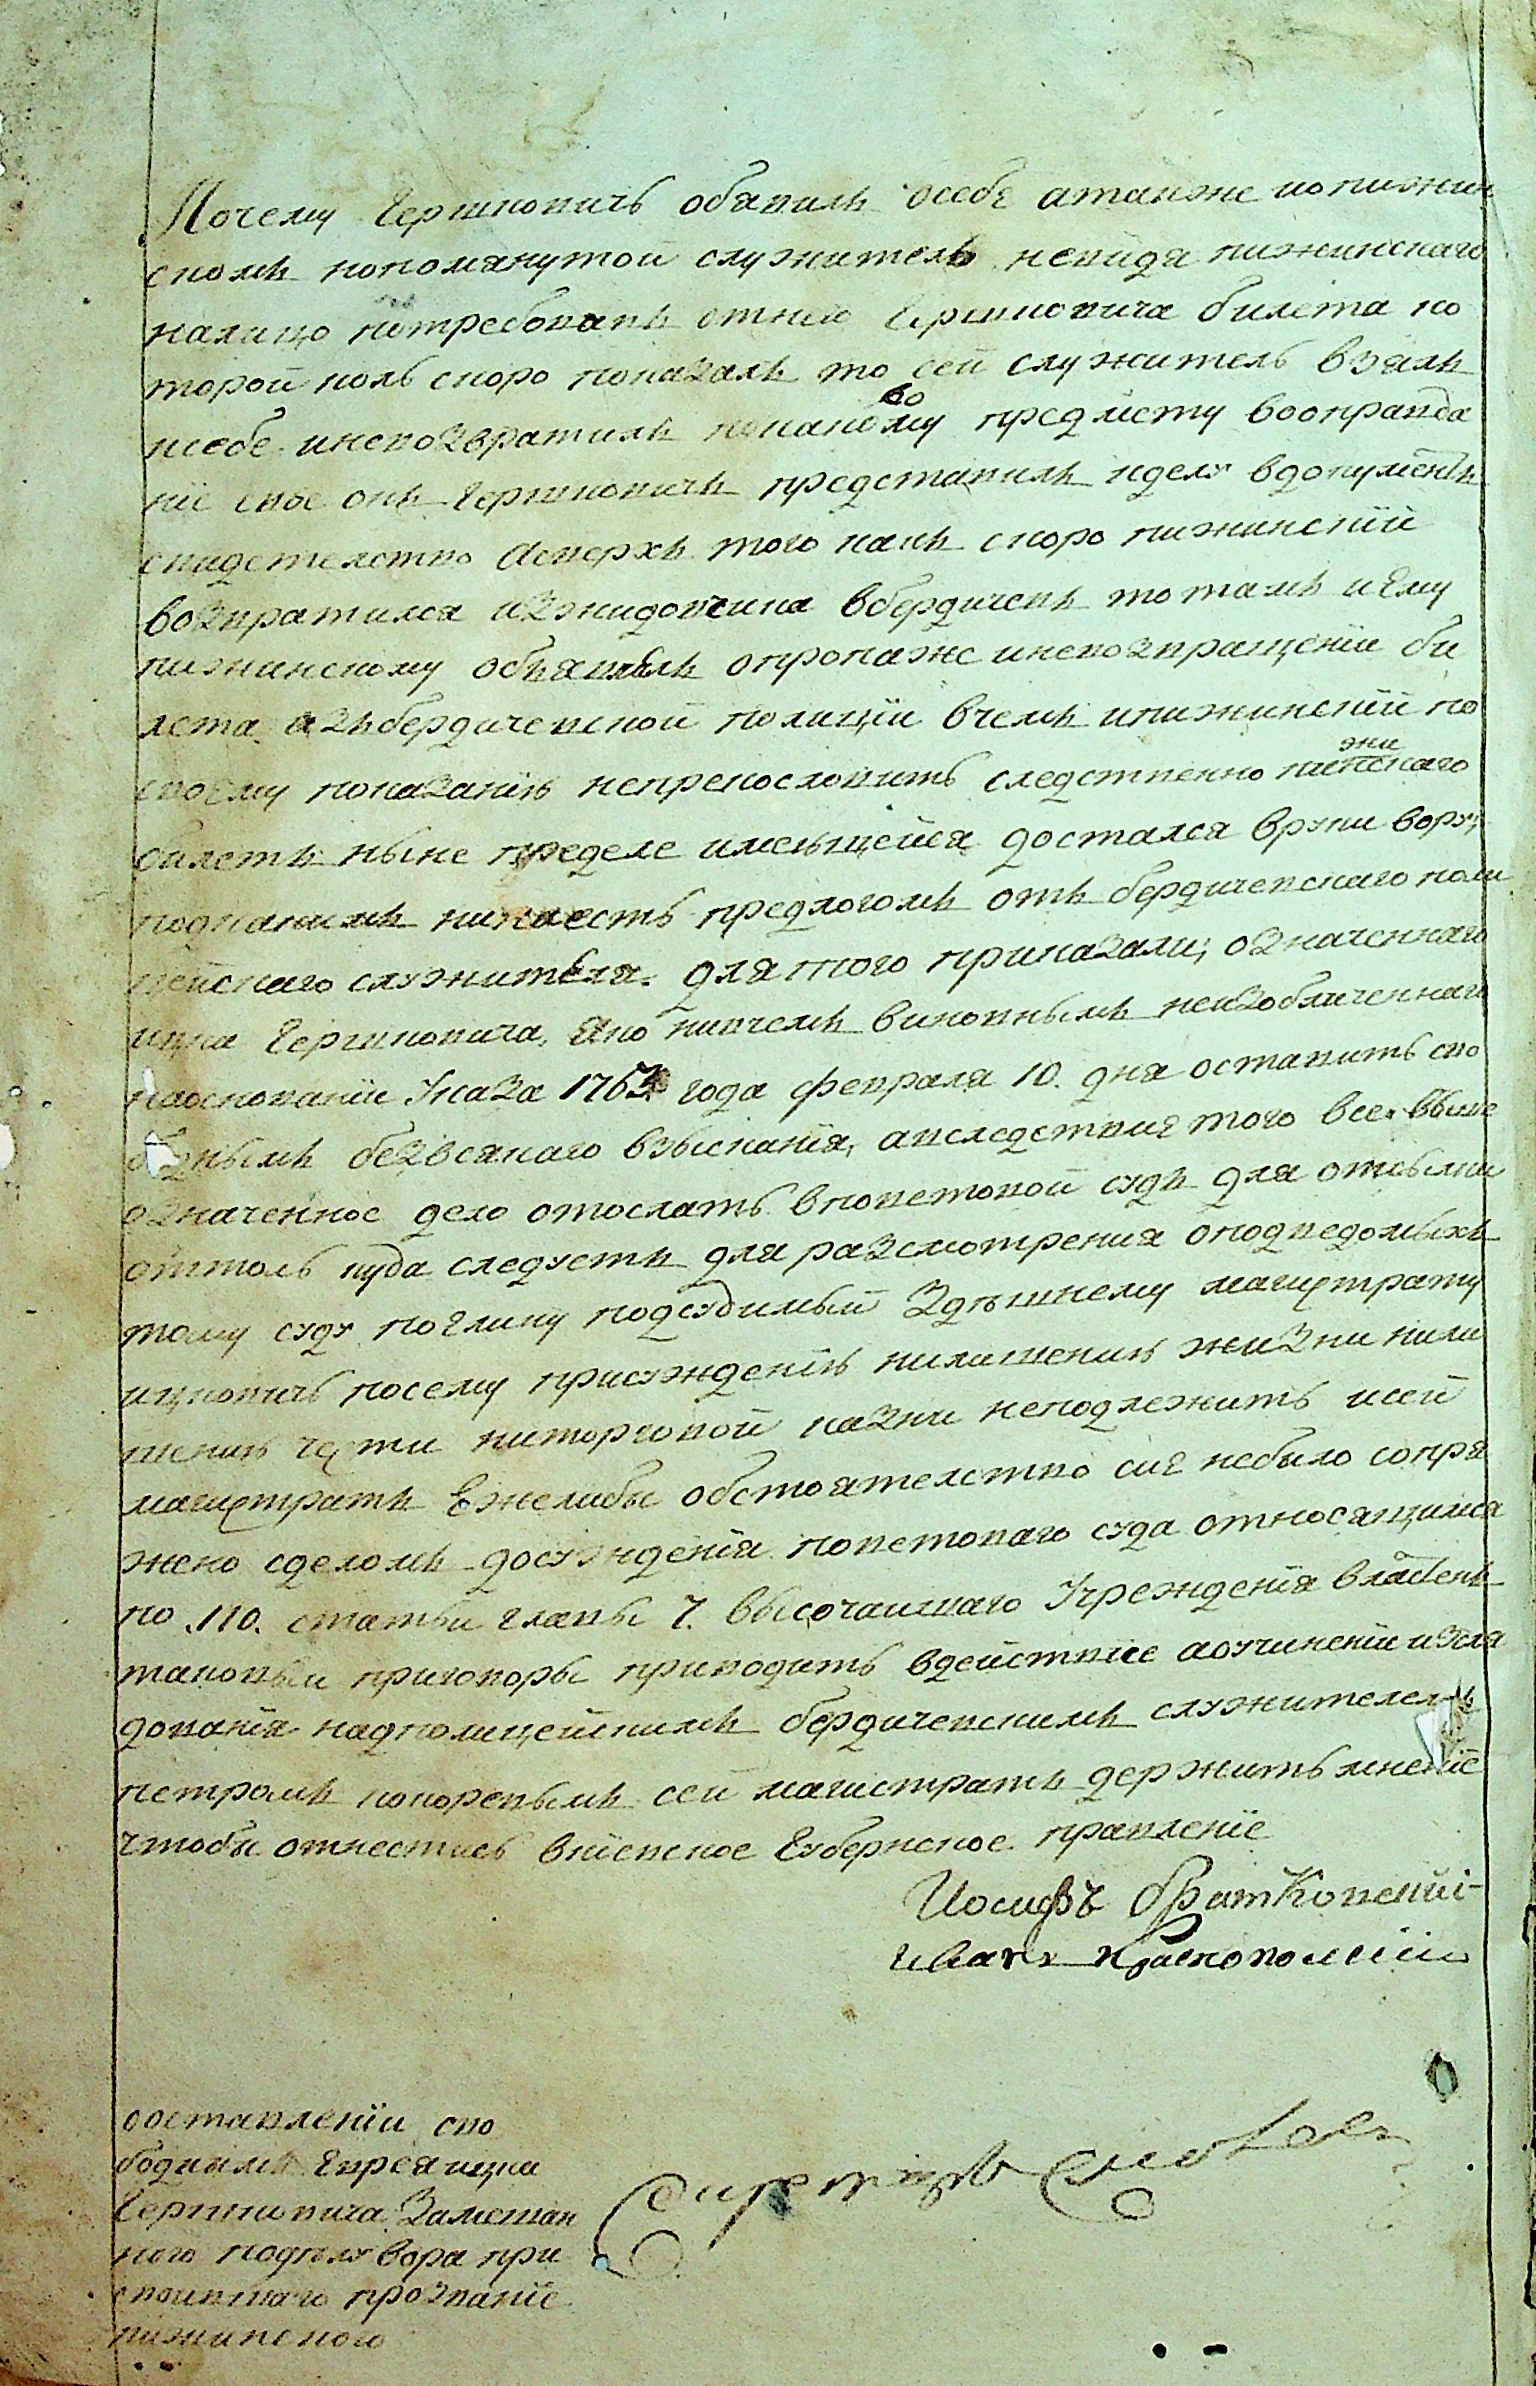 Почему Гершковичъ объявилъ осебе атакже иопижин
скомъ нопомянутой служитель невидя пижинскаго
налицо потребовалъ отнего Гершковича билета ко
торой коль скоро показалъ то сей служитель взялъ
ксебе иневозвратилъ покаковому предмету вооправда
ніе свое онъ Гершковичъ представилъ кделу вдокументъ
свидетелство Асверхъ того какъ скоро пижинскій
возвратился изжидовчика вбердичевъ то тамъ иему
пижинскому объявилъ опропаже иневозвращеніи би
лета изъбердичевской полиціи вчемъ ипижинскій по
своему показанію непрекословить следственно пижинскаго
билетъ ныне пределе имеющейся достался вруки вору,
подкакимъ нинаесть предлогомъ отъ бердичевскаго поли
цейскаго служителя. Для того приказали, означеннаго
ицка Гершковича, яко нивчемъ виновнымъ неизобличеннаго
наосновании Указа 1763 года февраля 10. дня оставить сво
боднымъ безвсякаго взыскания, авследствие того все выше
означенное дело отослать вповетовой судъ для отсылки
оттоль куда следуетъ для разсмотрения оподведомыхъ
тому суду поелику подсудимый Здѣшнему магистрату
ицковичь посему присужденію нилишению жизни нили
шению чести ниторговой казни неподлежитъ исей
магистратъ Ежелибы обстоятелство сие небыло сопря
жено сделомъ досужденія поветоваго суда относящимся
по .110. статьи главы 7. высочайшаго Учрежденія властенъ
таковыи приговоры приводить вдействие аоучинении изсле
дованія надполицейскимъ бердичевскимъ служителемъ
петромъ кокоревымъ сей магистратъ держитъ мнение
чтобы отнестись вкиевское Губернское правление
Иосифъ братковский
Иванъ Краснополский
ооставлении сво
боднымъ Евреяицка
Гершковича Замешан
ного поделу вора при
своившаго прозвание
пижинского
Секретарь